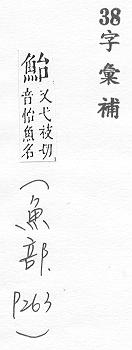 38字彙補
鮐 又弋枝切
音怡魚名
(魚部. P263)